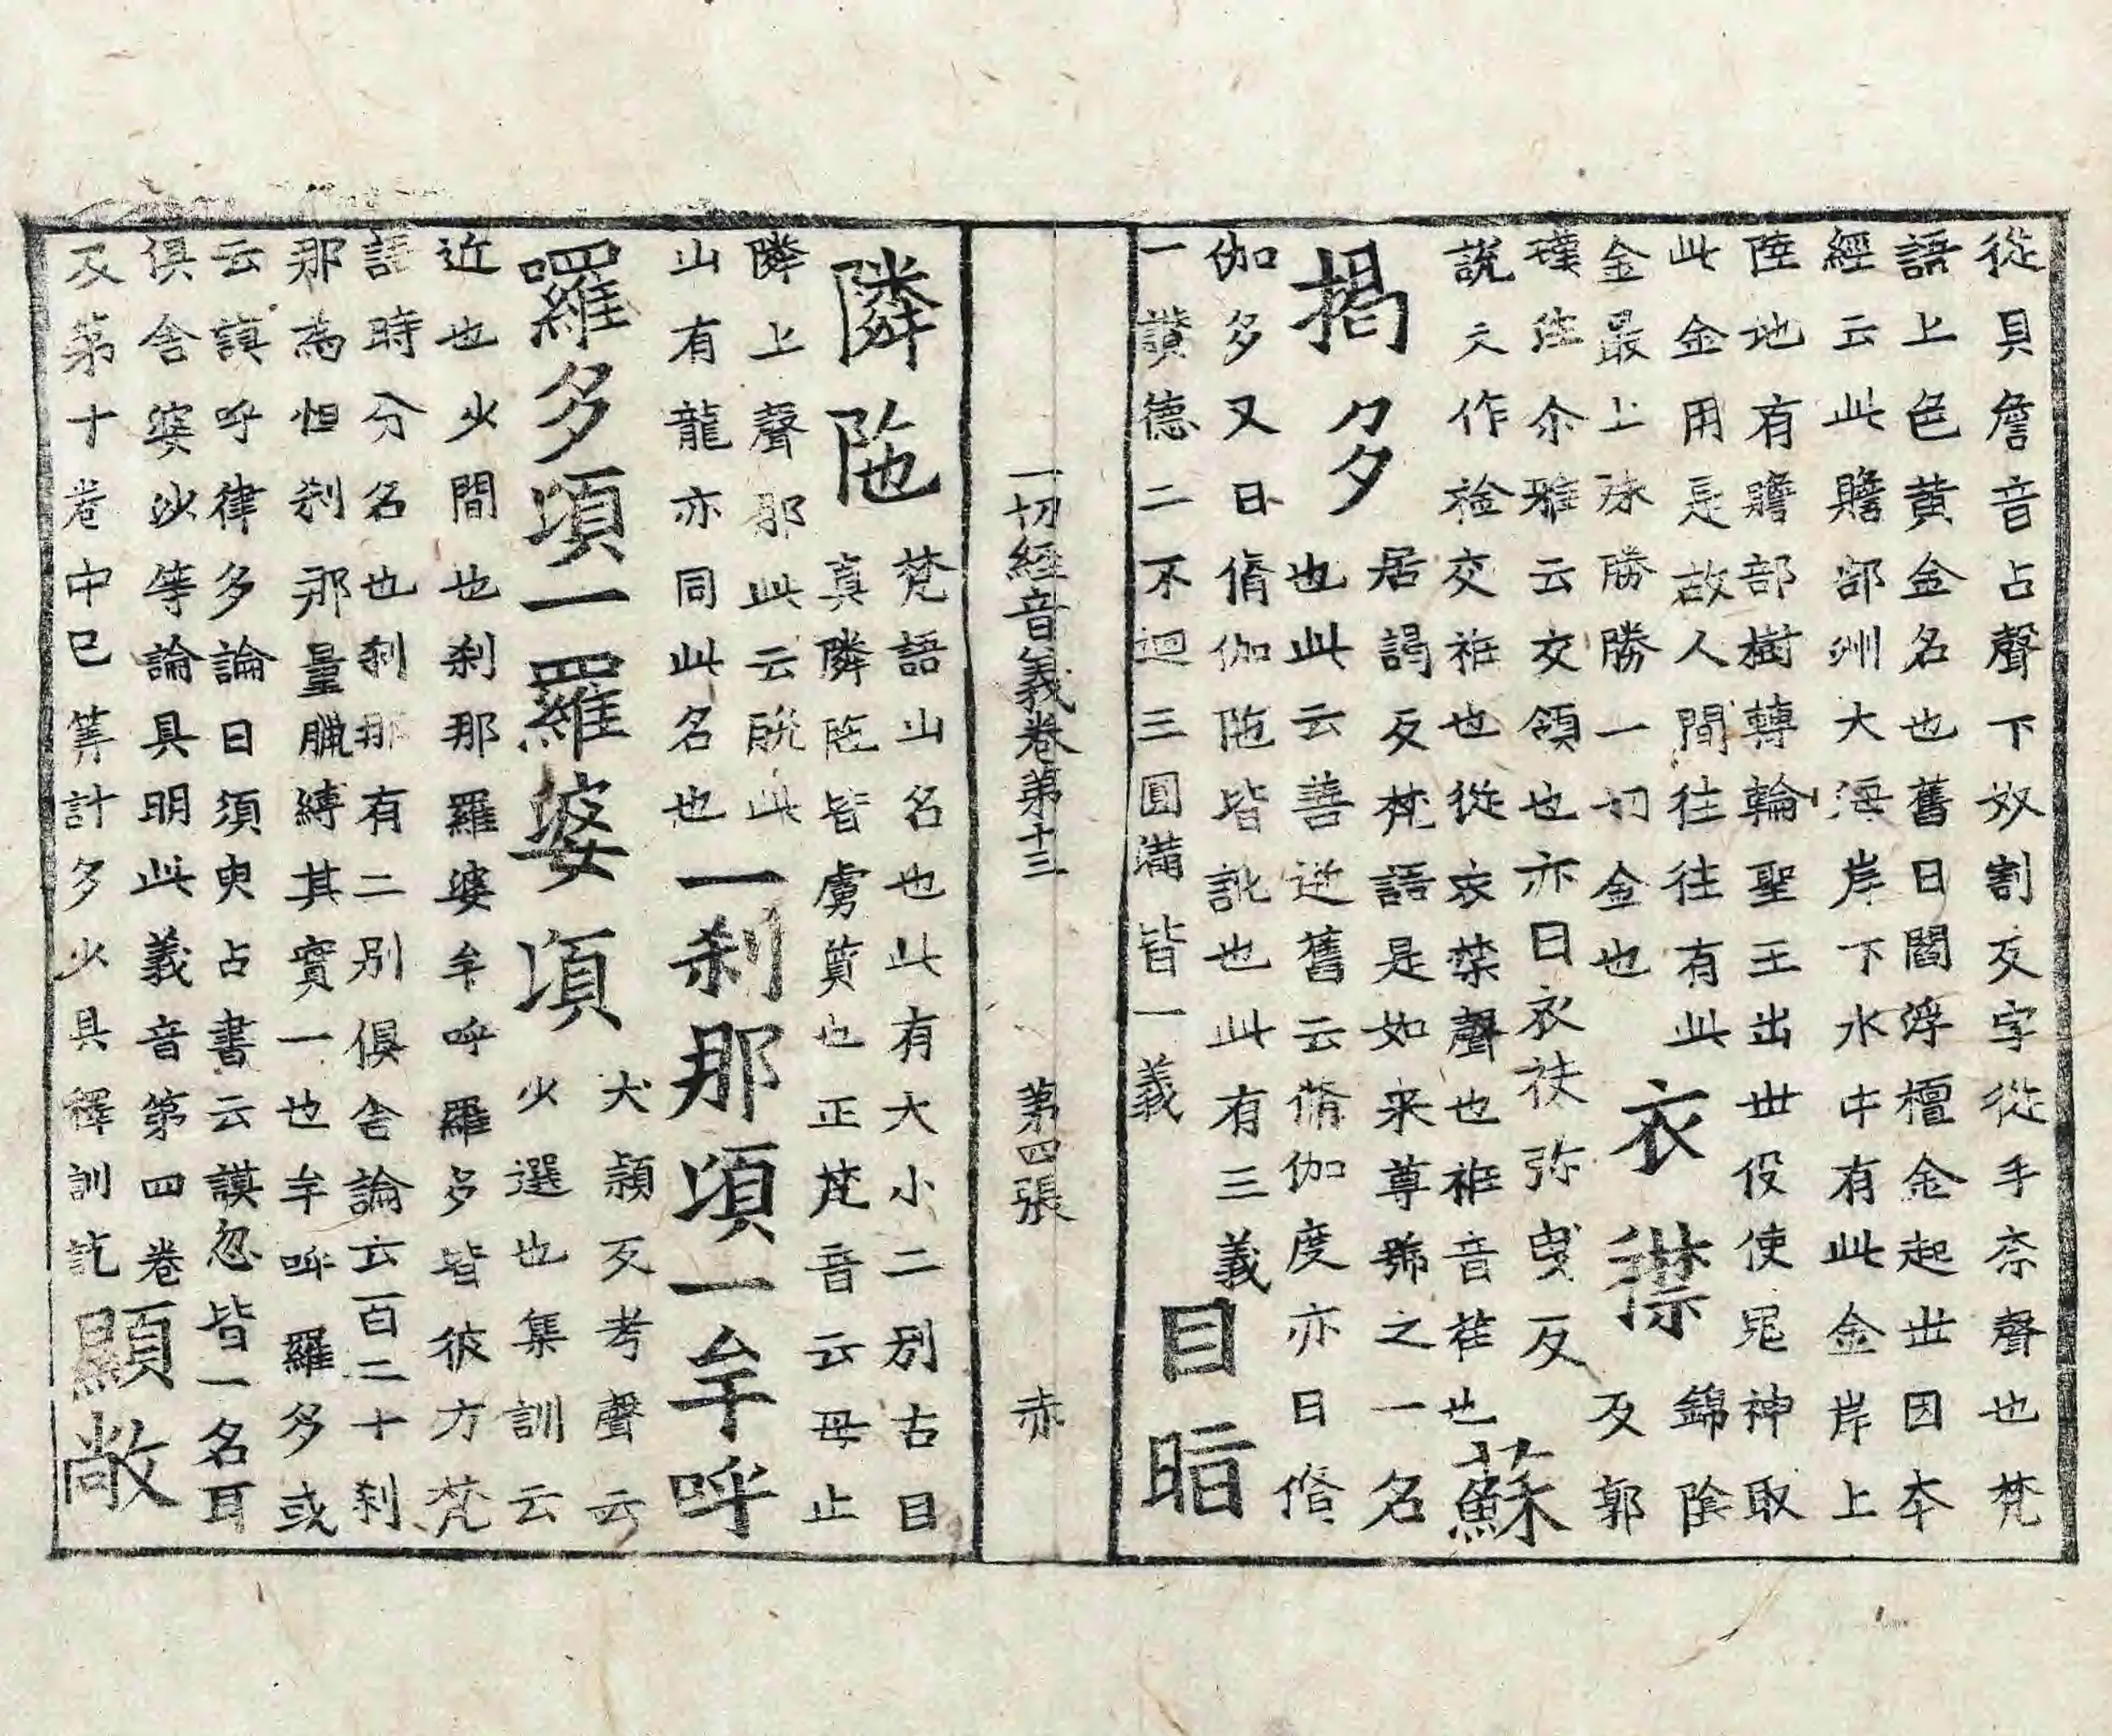 從具詹音占聲下奴割反字從手奈聲也梵
語上色黃金名也舊曰閻浮檀金起世因本
經云此贍部洲大海岸下水中有此金岸上
陸地有贍部樹轉輪聖王出世役使鬼神取
此金用是故人間往往有此
金最上殊勝勝一切金也
衣襟
錦陰
反郭
璞注尒雅云交領也亦曰衣袂弥曳反
說文作䘳交衽也從衣禁聲也衽音荏也
蘇
揭多
居謁反梵語是如来尊號之一名
也此云善逝舊云脩伽度亦曰脩
伽多又曰脩伽陁皆訛也此有三義
一讚德二不迴三圓滿皆一義
目
一切経音義卷第十三 第四張 赤
隣陁
梵語山名也此有大小二別古目
真隣陁皆虜質也正梵音云母止
隣上聲那此云脫此
山有龍亦同此名也
一刹那頃一牟呼
羅多頃一羅婆頃
犬潁反考聲云
少選也集訓云
近也少間也刹那羅婆牟呼羅多皆彼方梵
語時分名也刹那有二別俱舍論云百二十刹
那為怛刹那量臘縛其實一也牟呼羅多或
云謨呼律多論曰須臾占書云謨忽皆一名耳
俱舍婆沙等論具明此義音第四卷
及第十卷中已筭計多少具釋訓訖
顯敞